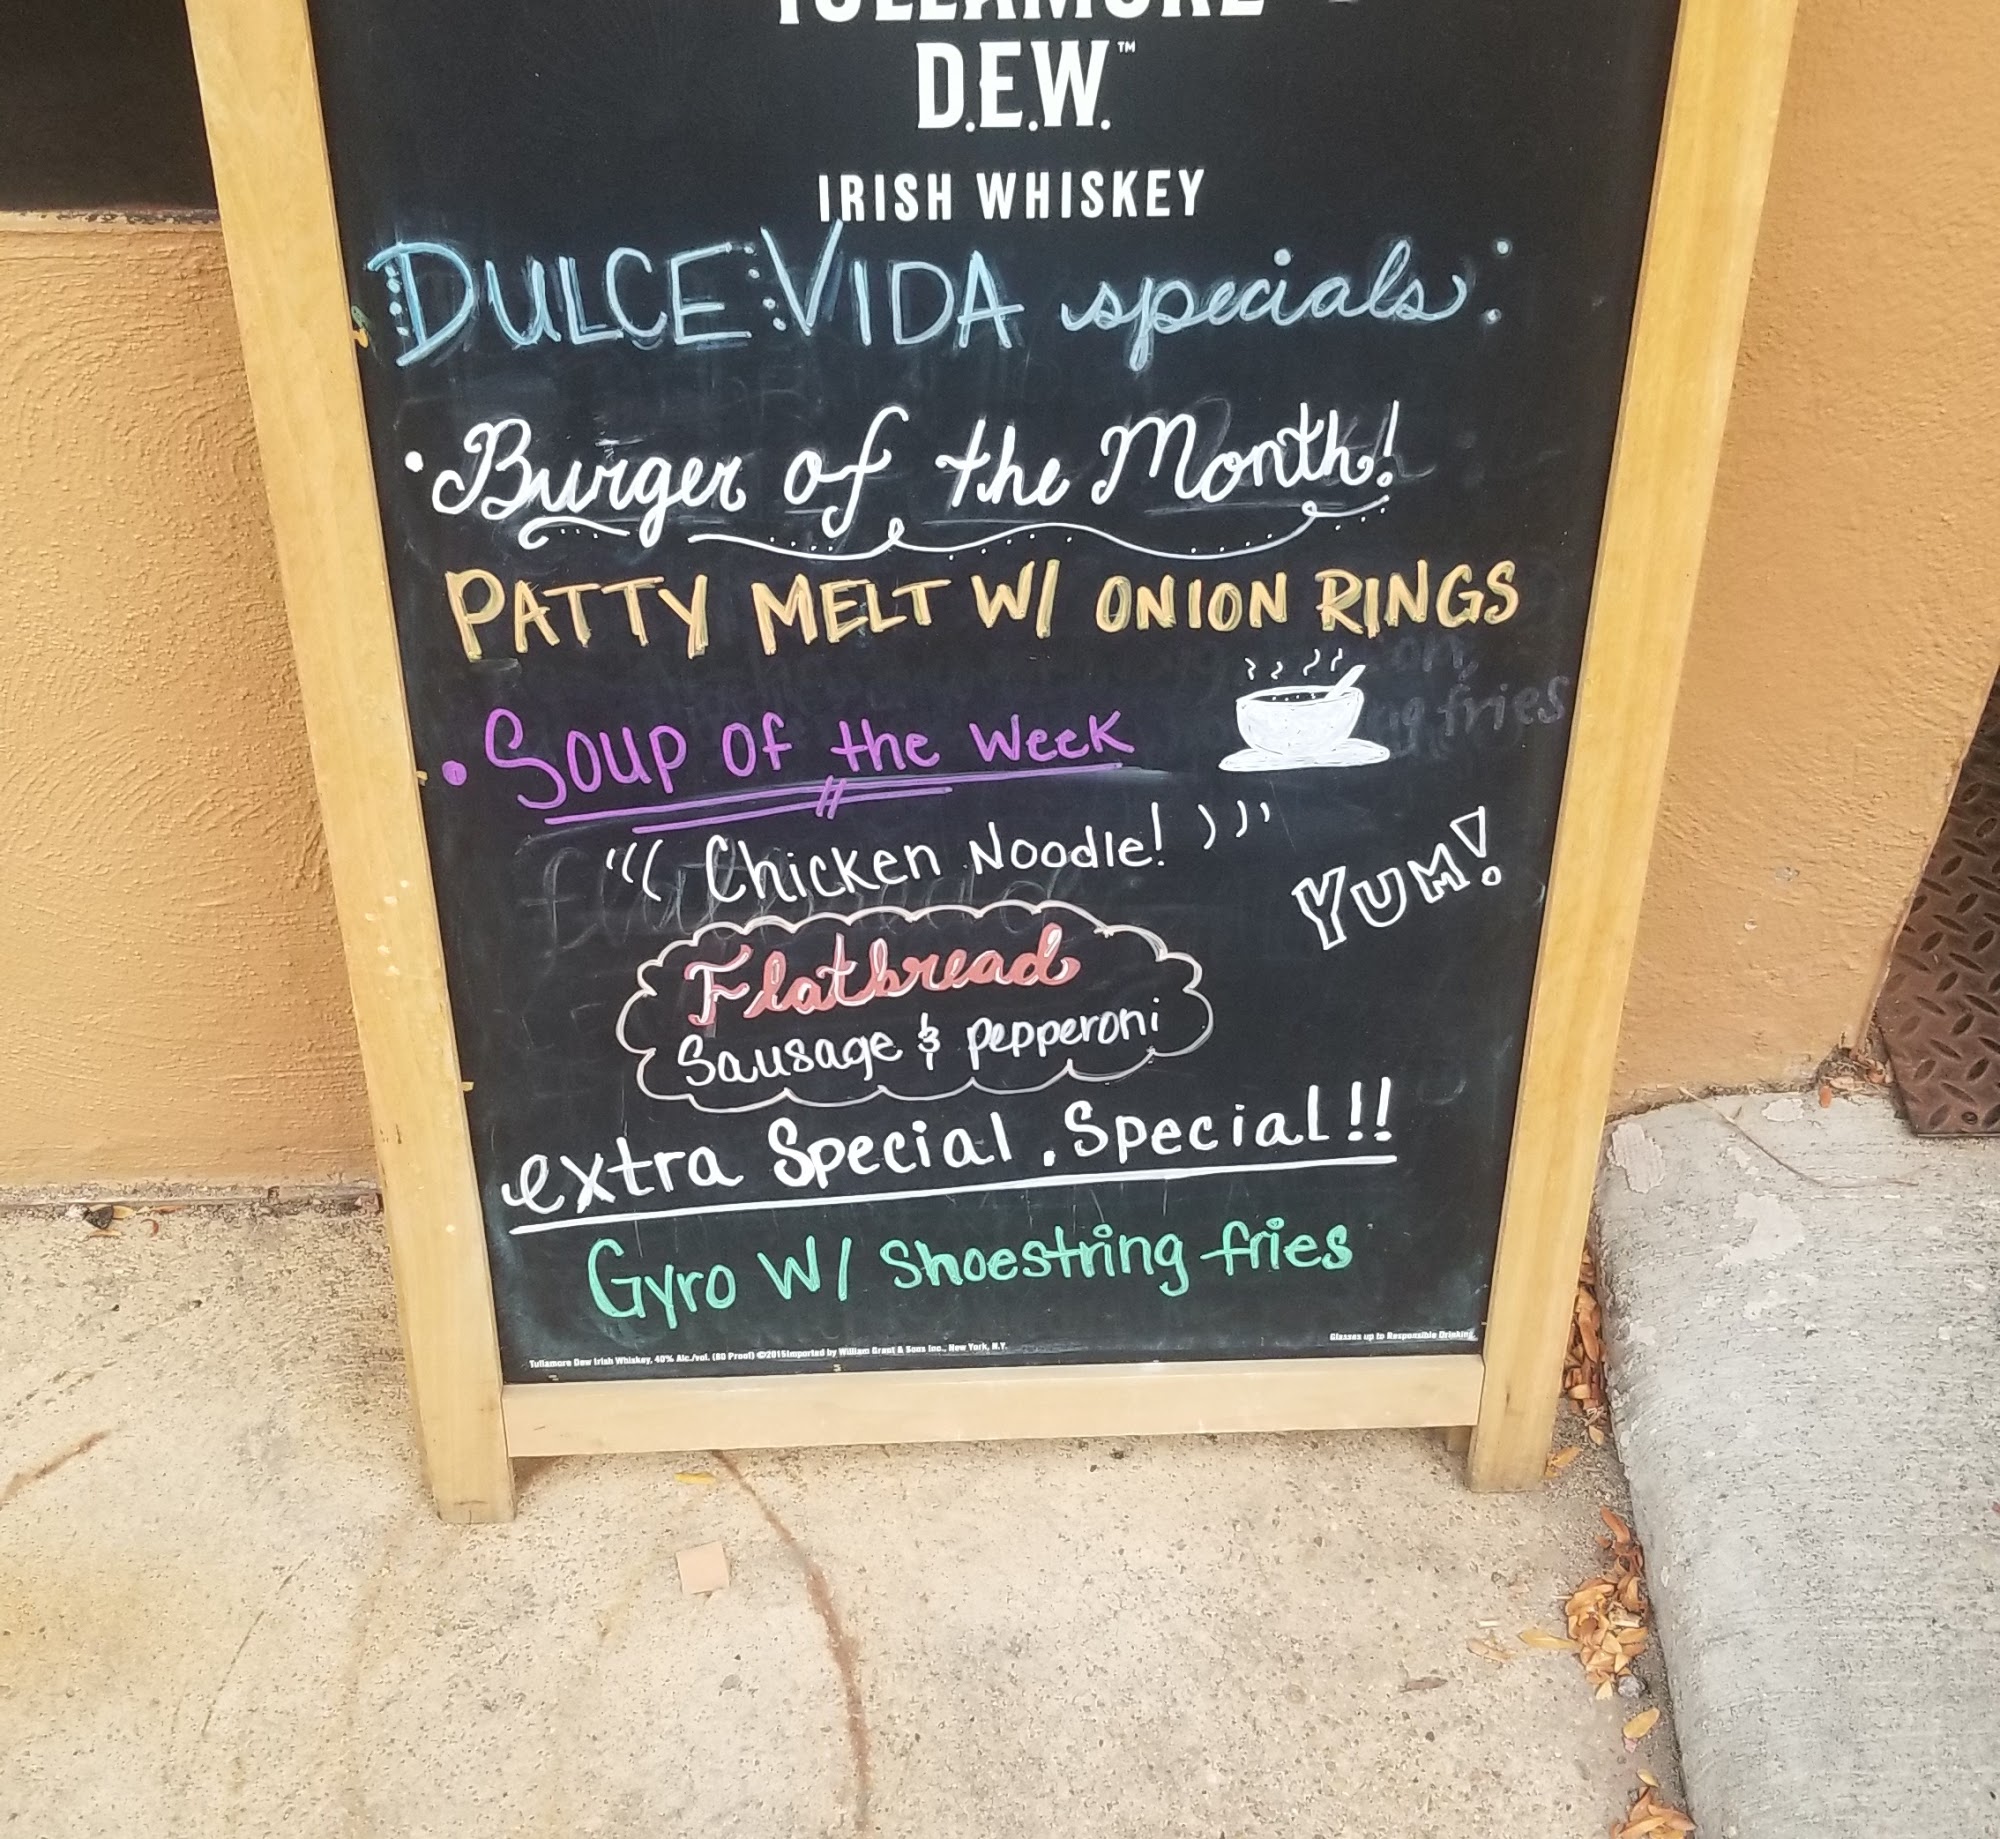 D.E.W.™
IRISH WHISKEY
DULCE VIDA specials:
• Burger of the Month!
PATTY MELT W/ ONION RINGS
• Soup of the Week
Chicken Noodle!
YUM!
Flatbread
Sausage & pepperoni
extra Special . Special!!
Gyro W/ Shoestring fries
Glasses up to Responsible Drinking
Tullamore Dew Irish Whiskey, 40% Alc./vol. (80 Proof) ©2015 Imported by William Grant & Sons Inc., New York, N.Y.